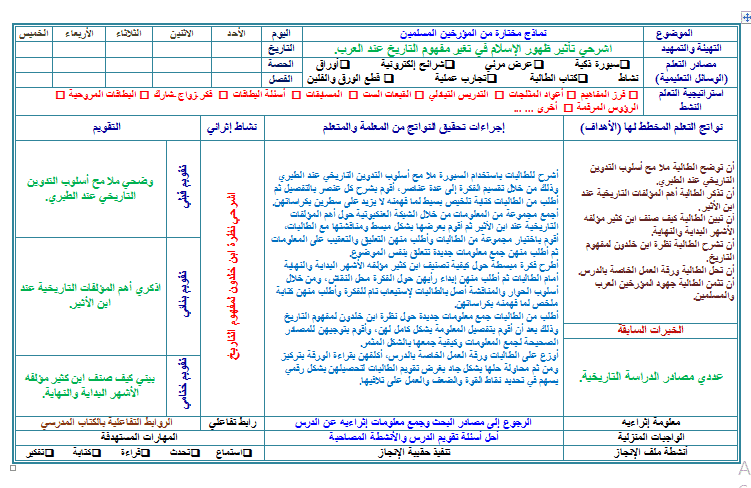 الموضوع
نماذج مختارة من المؤرخين المسلمين
اليوم
الأحد
الاثنين
الثلاثاء
الأربعاء
الخميس
التهيئة والتمهيد
اشرحي تأثير ظهور الإسلام في تغير مفهوم التاريخ عند العرب.
التاريخ
مصادر التعلم
(الوسائل التعليمية)
سبورة ذكية
عرض مرئي
شرائح إلكترونية
أوراق
نشاط
كتاب الطالبة
تجارب عملية
قطع الورق والفلين
الحصة
الفصل
استراتيجية التعلم
النشط
فرز المفاهيم
أعواد المثلجات
التدريس التبادلي
القبعات الست
المسابقات
أسئلة البطاقات
فكر زواج شارك
البطاقات المروحية
الرؤوس المرقمة
أخرى ... ...
نواتج التعلم المخطط لها (الأهداف)
إجراءات تحقيق النواتج من المعلمة والمتعلم
نشاط إثرائي
التقويم
أن توضح الطالبة ملامح أسلوب التدوين
التاريخي عند الطبري.
أن تذكر الطالبة أهم المؤلفات التاريخية عند
ابن الأثير.
أن تبين الطالبة كيف صنف ابن كثير مؤلفه
الأشهر البداية والنهاية.
أن تشرح الطالبة نظرة ابن خلدون لمفهوم
التاريخ.
أن تحل الطالبة ورقة العمل الخاصة بالدرس.
أن تثمن الطالبة جهود المؤرخين العرب
والمسلمين.
الخبرات السابقة
عددي مصادر الدراسة التاريخية.
أشرح للطالبات باستخدام السبورة ملامح أسلوب التدوين التاريخي عند الطبري
وذلك من خلال تقسيم الفكرة إلى عدة عناصر، أقوم بشرح كل عنصر بالتفصيل ثم
أطلب من الطالبات كتابة تلخيص بسيط لما فهمنه لا يزيد على سطرين بكراساتهن.
أجمع مجموعة من المعلومات من خلال الشبكة العنكبوتية حول أهم المؤلفات
التاريخية عند ابن الأثير ثم أقوم بعرضها بشكل مبسط ومناقشتها مع الطالبات،
أقوم باختيار مجموعة من الطالبات وأطلب منهن التعليق والتعقيب على المعلومات
ثم أطلب منهن جمع معلومات جديدة تتعلق بنفس الموضوع.
أطرح فكرة مبسطة حول كيفية تصنيف ابن كثير مؤلفه الأشهر البداية والنهاية
أمام الطالبات ثم أطلب منهن إبداء رأيهن حول الفكرة محل النقاش، ومن خلال
أسلوب الحوار والمناقشة أصل بالطالبات لاستيعاب تام للفكرة وأطلب منهن كتابة
ملخص لما فهمنه بكراساتهن.
أطلب من الطالبات جمع معلومات جديدة حول نظرة ابن خلدون لمفهوم التاريخ
وذلك بعد أن أقوم بتفصيل المعلومة بشكل كامل لهن، وأقوم بتوجيههن للمصادر
الصحيحة لجمع المعلومات وكيفية جمعها بالشكل المثمر.
أوزع على الطالبات ورقة العمل الخاصة بالدرس، أكلفهن بقراءة الورقة بتركيز
ومن ثم محاولة حلها بشكل جاد بغرض تقويم الطالبات لتحصيلهن بشكل رقمي
يسهم في تحديد نقاط القوة والضعف والعمل على تلافيها.
اشرحي نظرة ابن خلدون لمفهوم التاريخ
تقويم قبلي
وضحي ملامح أسلوب التدوين
التاريخي عند الطبري.
تقويم بنائي
اذكري أهم المؤلفات التاريخية عند
ابن الأثير.
تقويم ختامي
بيني كيف صنف ابن كثير مؤلفه
الأشهر البداية والنهاية.
معلومة إثرائيه
الرجوع إلى مصادر البحث وجمع معلومات إثرائيه عن الدرس
رابط تفاعلي
الروابط التفاعلية بالكتاب المدرسي
الواجبات المنزلية
أحل أسئلة تقويم الدرس والأنشطة المصاحبة
المهارات المستهدفة
أنشطة ملف الإنجاز
تنفيذ حقيبة الإنجاز
استماع
تحدث
قراءة
كتابة
تفكير